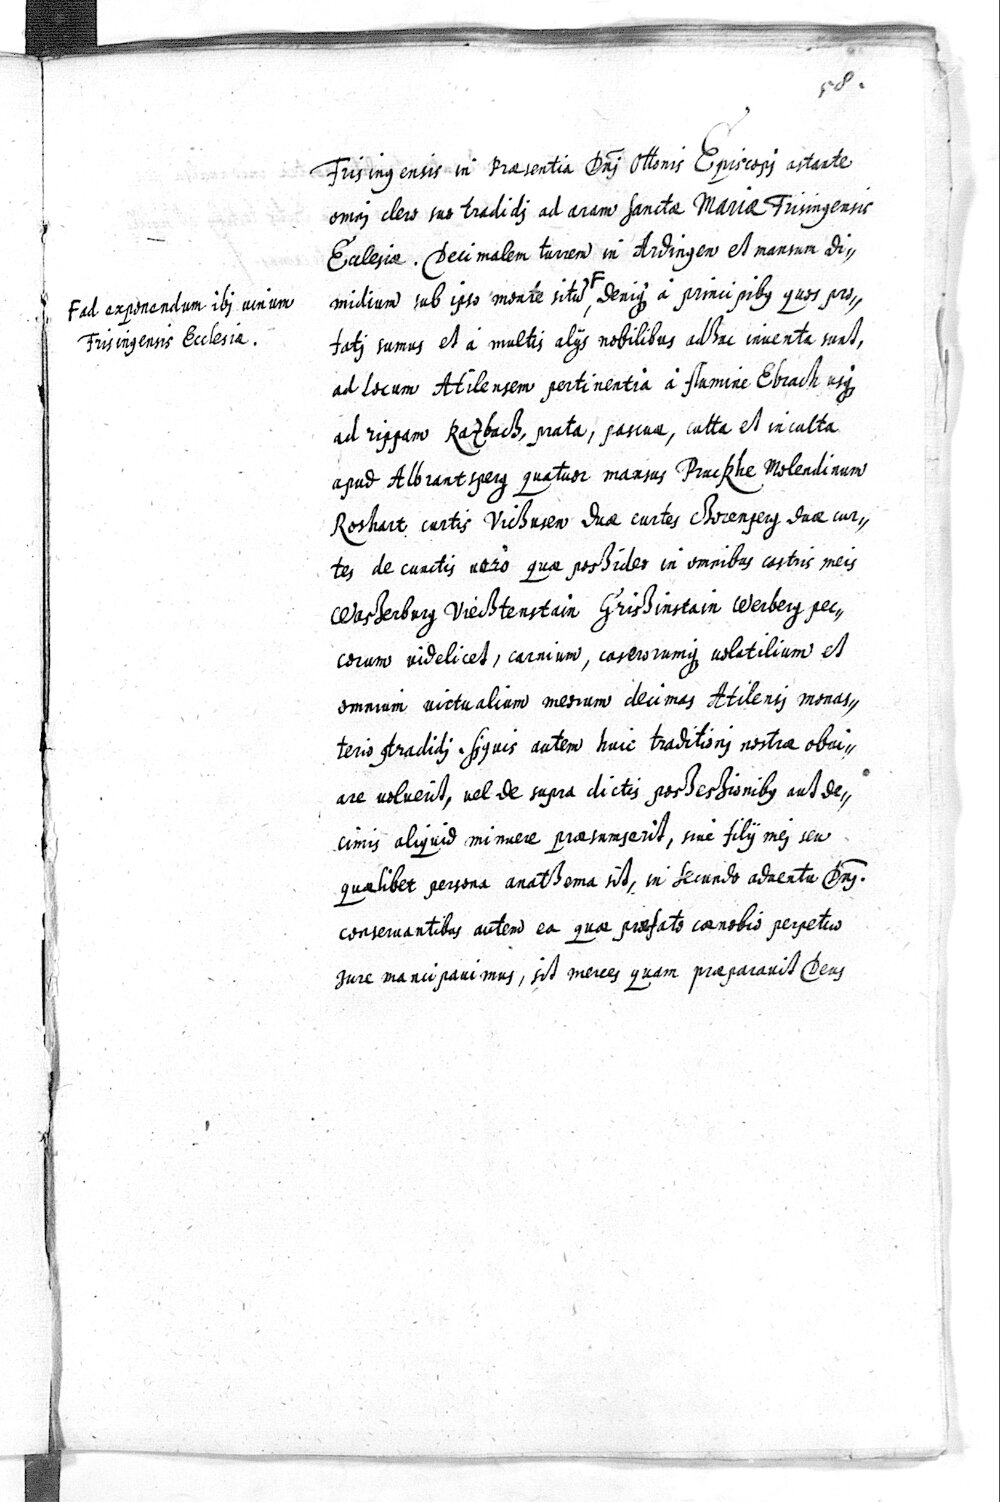 58.
Frisingensis in Præsentia Dn̄j Ottonis Episcopj astante
omnj clero suo tradidj ad aram sanctæ Mariæ Frisingensis
Ecclesiæ. Decimalem turrem in Ardingen et mansum di„
midium sub ipso monte situ, F deniq́ à principibq quos pro„
fatj sumus et à multis alijs nobilibus adhuc inventa sunt,
ad locum Atilensem pertinentia à flumine Ebrach usq́
ad rippam Kazbach, prata, pascuæ, culta et inculta
apud Albrantsperg quatuor mansus Pruckhe Molendinum
Roshart curtis Vichusen duæ curtes Chorenperg duæ cur„
tes de cunctis uerò quæ possideo in omnibus castris meis
Wasserburg Viechtenstain Grissinstain Werberg pec„
corum uidelicet, carnium, caseorumq́ uolatilium et
omnium uictualium meorum decimas Atilensj monas„
terio tradidj. Siquis autem huic traditionj nostræ obui„
are uoluerit, uel de supra dictis possessionibq aut de„
cimis aliquid minuere præsumserit, siue filij mej seu
quælibet persona anathema sit, in secundo aduentu Dn̄j.
conseruantibus autem ea quæ præfato cœnobio perpetuo
jure mancipauimus, sit merces quam præparauit Deus
F ad exponendum ibj uinum
Frisingensis Ecclesiæ.